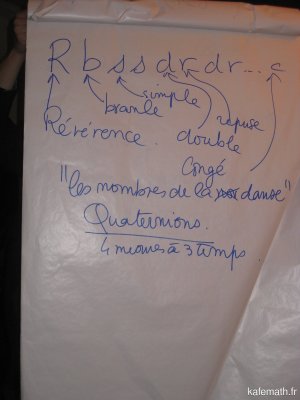 R b s s d r d r ... c
simple
branle
reprise
Révérence.
double
Congé
"les nombres de la danse"
Quaternions.
4 mesures à 3 temps.
kafemath.fr